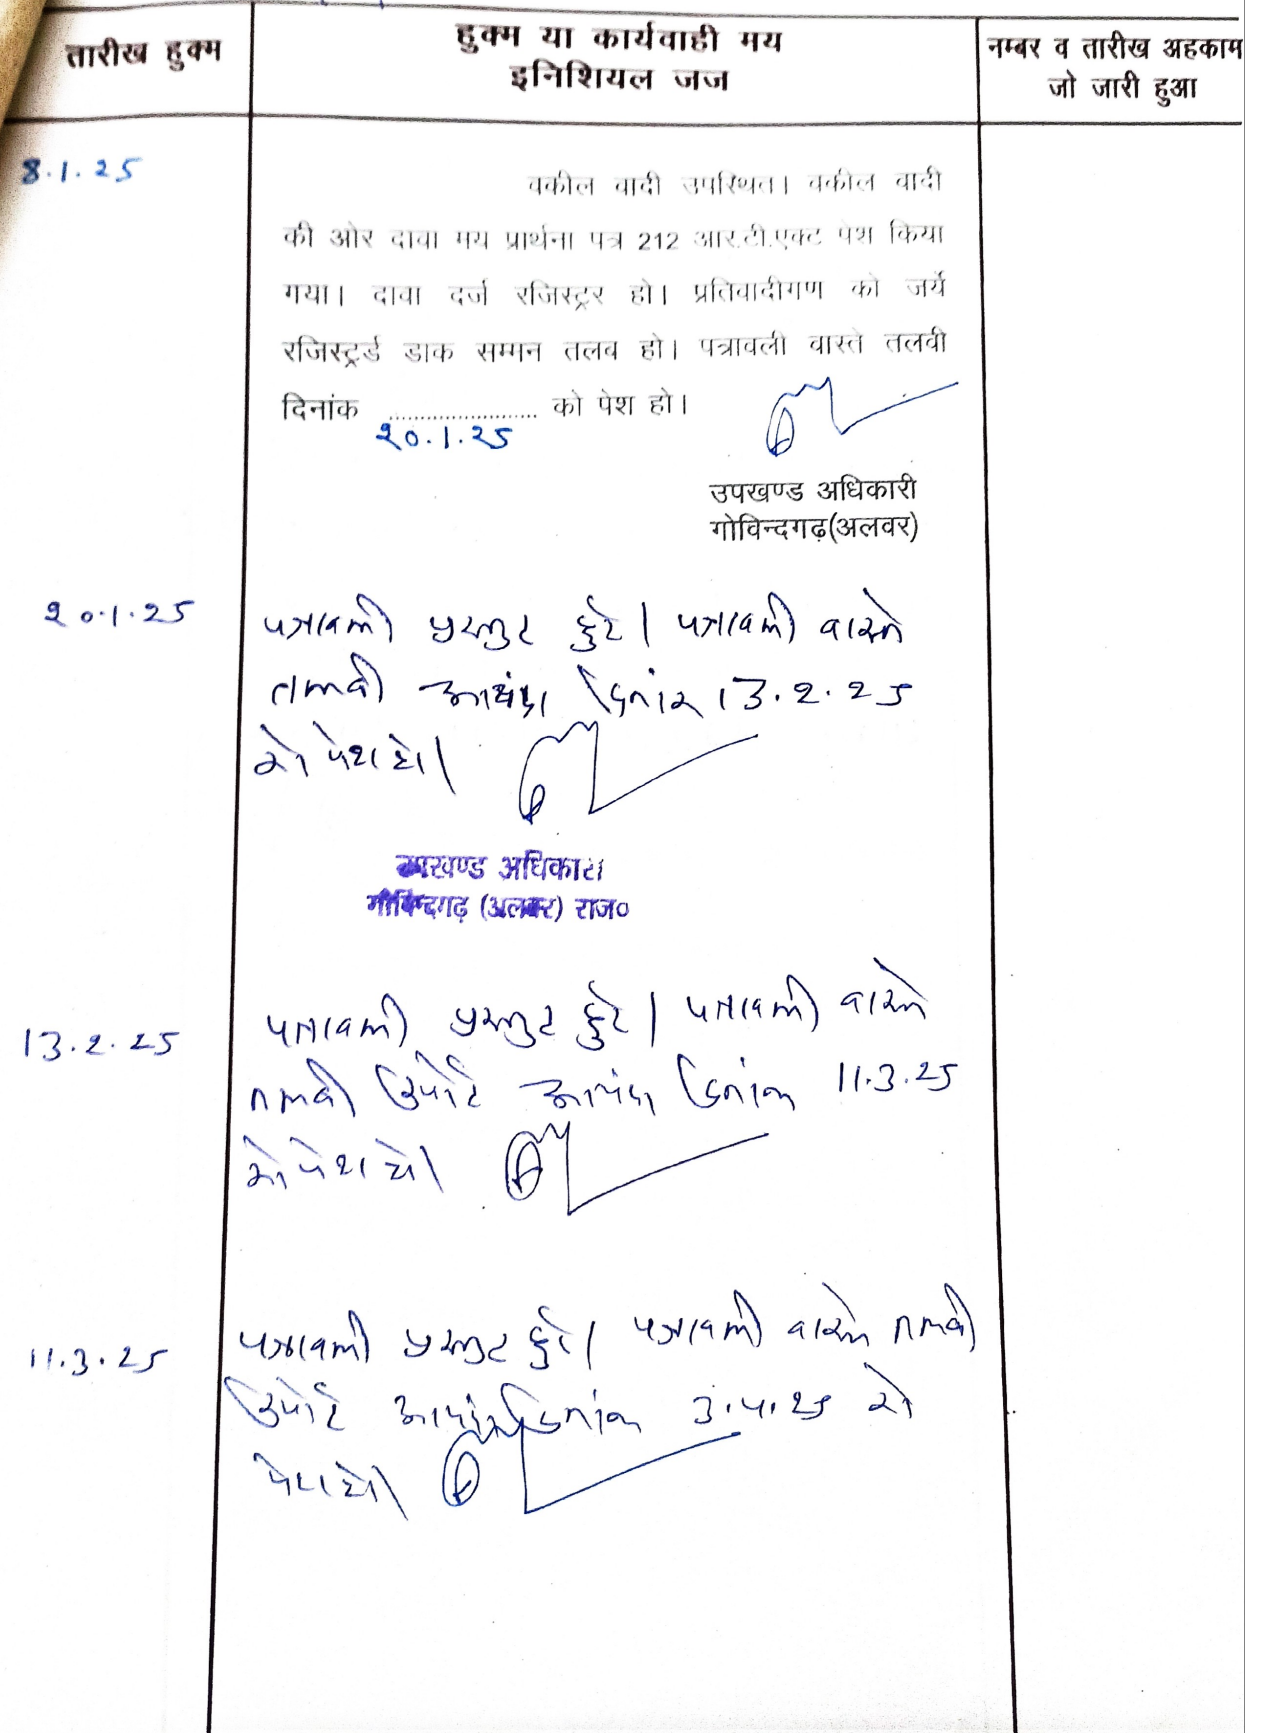 तारीख हुक्म
हुक्म या कार्यवाही मय
इनिशियल जज
नम्बर व तारीख अहकाम
जो जारी हुआ
8.1.25
वकील वादी उपस्थित। वकील वादी
की ओर दावा मय प्रार्थना पत्र 212 आर.टी.एक्ट पेश किया
गया। दावा दर्ज रजिस्ट्रर हो। प्रतिवादीगण को जर्ये
रजिस्ट्रर्ड डाक सम्मन तलब हो। पत्रावली वास्ते तलवी
दिनांक ........................ को पेश हो।
२०.1.२5
उपखण्ड अधिकारी
गोविन्दगढ़(अलवर)
२०.1.25
पत्रावली प्रस्तुत हुई। पत्रावली वास्ते
तलवी आयंदा दिनांक 13.२.२5
को पेश हो।
उपखण्ड अधिकारी
गोविन्दगढ़ (अलवर) राज०
13.२.25
पत्रावली प्रस्तुत हुई। पत्रावली वास्ते
तलवी रिपोर्ट आयंदा दिनांक 11.3.25
को पेश हो।
11.3.25
पत्रावली प्रस्तुत हुई। पत्रावली वास्ते तलवी
रिपोर्ट आयंदा दिनांक 3.4.25 को
पेश हो।